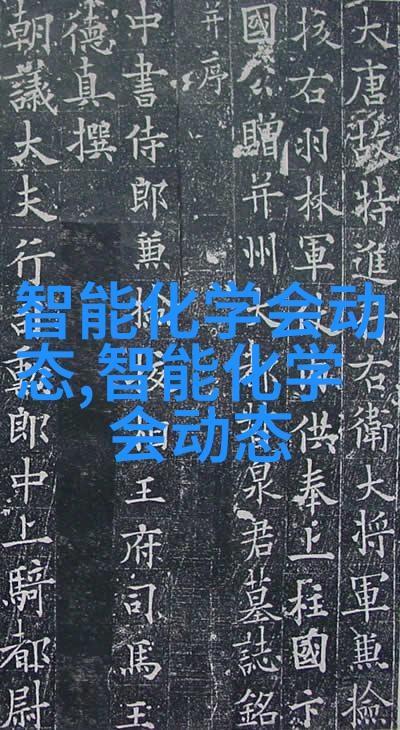 大唐故特進右衛大将軍兼撿
挍右羽林軍供奉上柱國卞
國公贈并州大泉君墓誌銘
并序
中書侍郎兼撿相王府司馬王
德真撰
朝議大夫行勳郎中上騎都尉
智能化学会动
态,智能化学
会动态